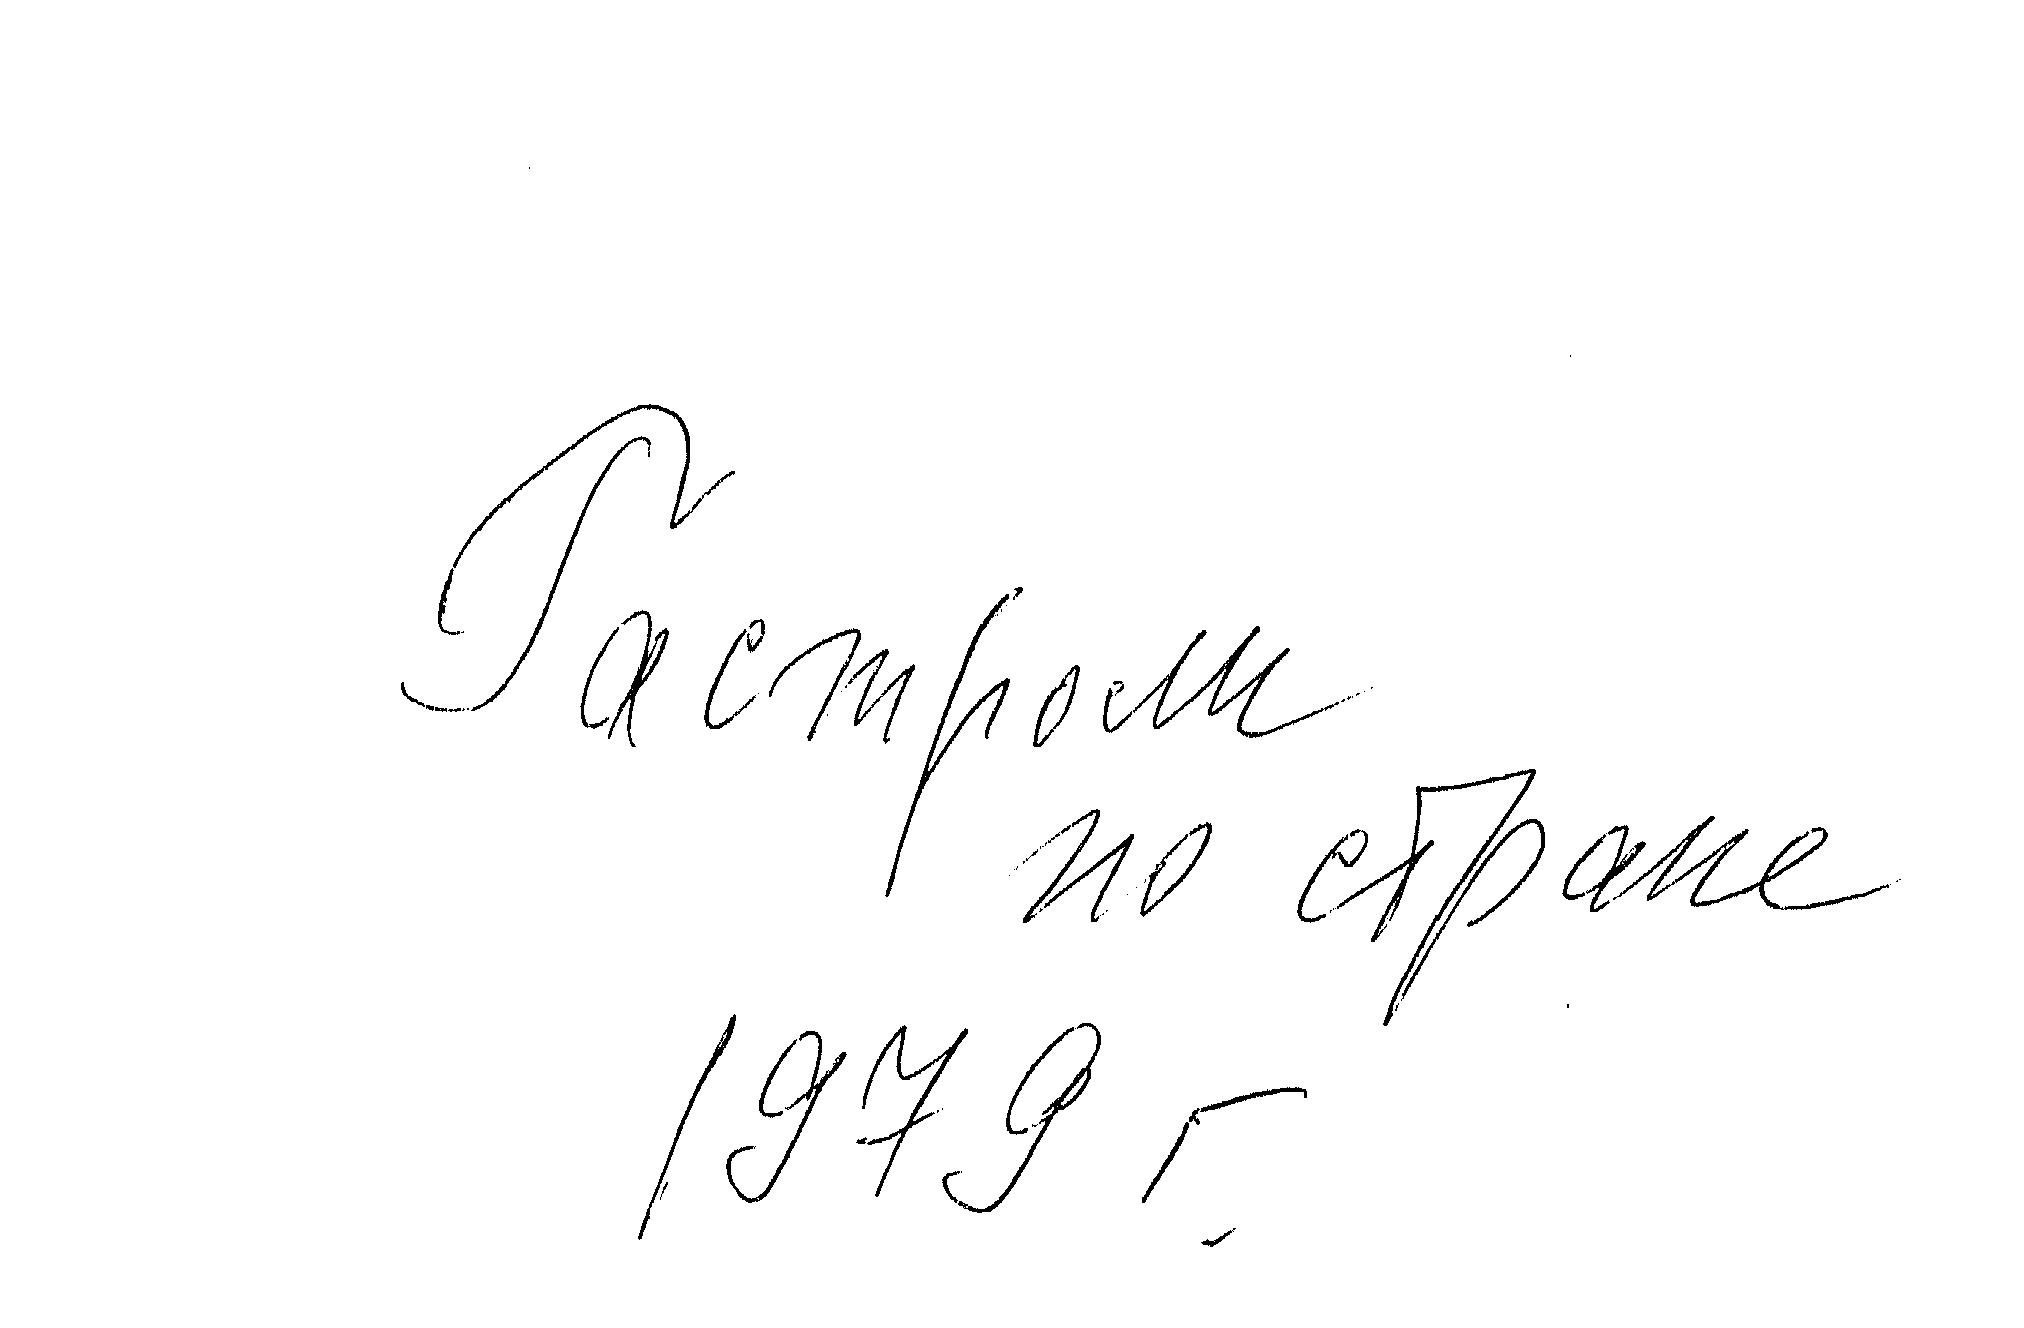 Гастроли
по стране
1979 г.